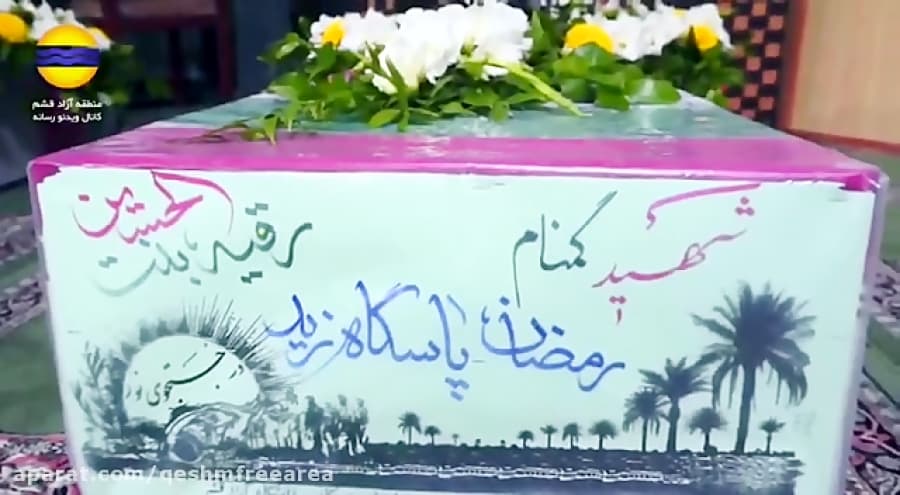 منطقه آزاد قشم
کانال ویدئو رسانه
شهید گمنام
رقیه بنت الحسین
رمضان پاسگاه زید
در جستجوی نور
aparat.com/qeshmfreearea